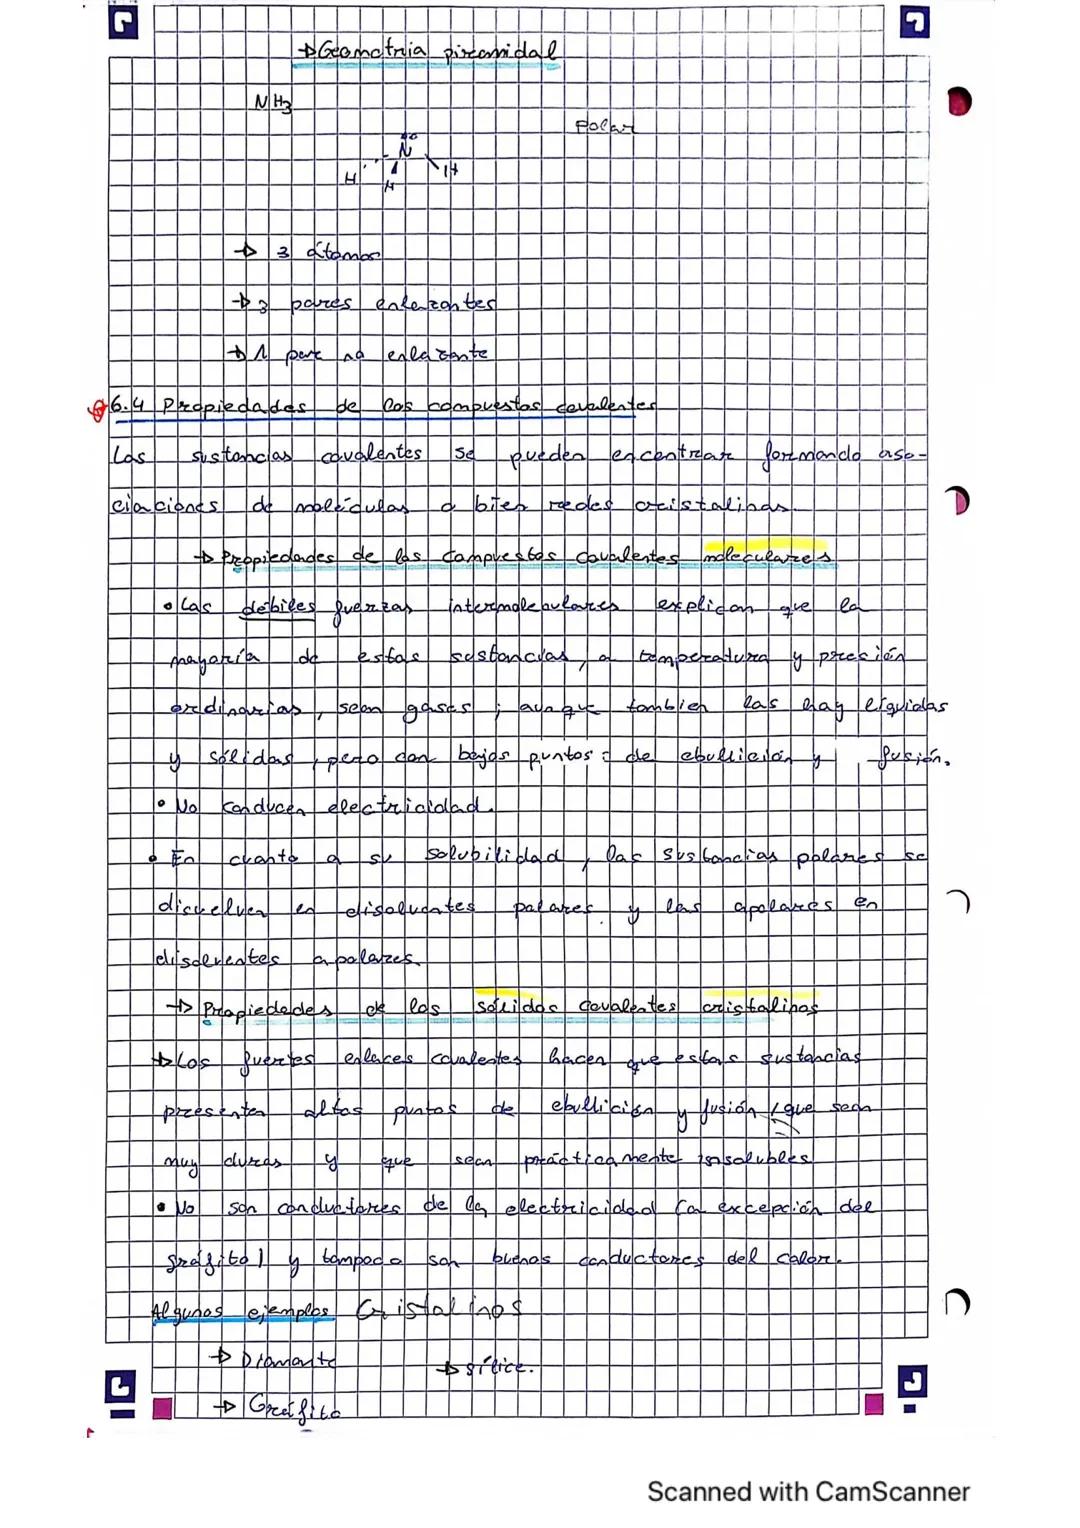 →Geometria piramidal
NH3
Polar
N
H H H
→ 3 átomos
→ 3 pares enlazantes
→ 1 par no enlazante
6.4 Propiedades de los compuestos covalentes
Las sustancias covalentes se pueden encontrar formando aso-
ciaciones de moléculas o bien redes cristalinas.
→ Propiedades de los compuestos covalentes moleculares
• Las débiles fuerzas intermoleculares explican que la
mayoría de estas sustancias, a temperatura y presión
ordinarias, sean gases; aunque tambien las hay líquidas
y sólidas, pero con bajos puntos de ebullición y fusión.
• No conducen electricidad.
• En cuanto a su solubilidad, las sustancias polares se
disuelven en disolventes polares y las apolares en
disolventes apolares.
→ Propiedades de los sólidos covalentes cristalinos
→ Los fuertes enlaces covalentes hacen que estas sustancias
presenten altos puntos de ebullición y fusión, que sean
muy duras y que sean prácticamente insolubles
• No son conductores de la electricidad (a excepción del
gráfito) y tampoco son buenos conductores del calor.
Algunos ejemplos Cristalinos
→ Diamante → sílice.
→ Gráfito
Scanned with CamScanner